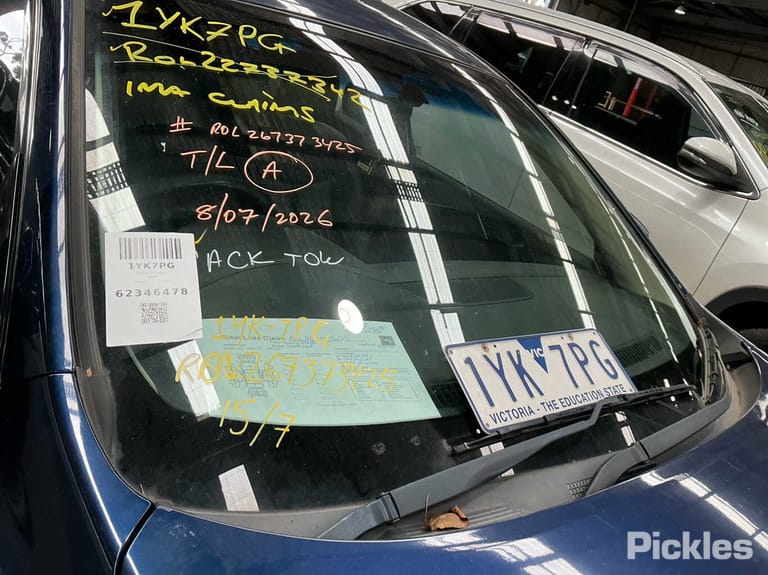 1YK7PG
ROL22737342
IMA CLAIMS
# ROL267373425
T/L A
8/07/2026
ACK TOW
1YK7PG
62346478
1YK-7PG
Total Loss Claim
ROL267373425
15/7
1YK 7PG
VIC
VICTORIA - THE EDUCATION STATE
Pickles